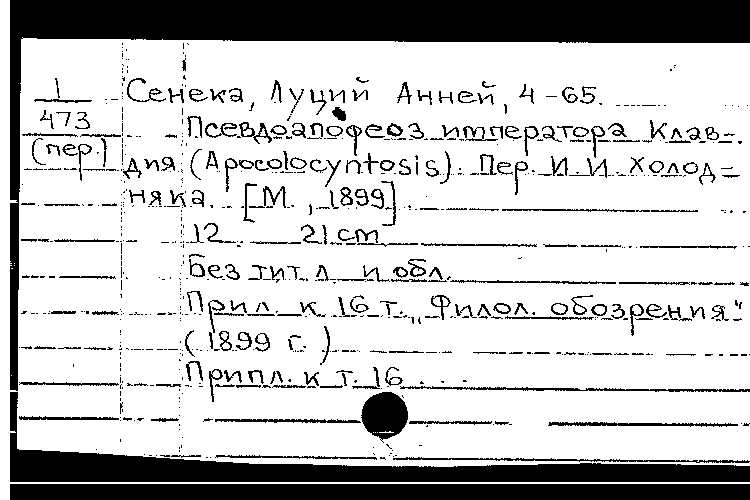 1
473
(пер.)
Сенека, Луций Анней, 4-65.
Псевдоапофеоз императора Клав-
дия (Apocolocyntosis). Пер. И.И. Холод=
няка. [М., 1899].
12 21 cm
Без тит. л. и обл.
Прил. к 16 т. „Филол. обозрения“
(1899 г.)
Припл. к т. 16...